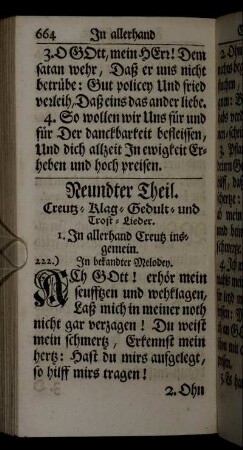 664 In allerhand
3. O GOtt, mein HErr! Dem
satan wehr, Daß er uns nicht
betrübe: Gut policey Und fried
verleih, Daß eins das ander liebe.
4. So wollen wir Uns für und
für Der danckbarkeit befleissen,
Und dich allzeit In ewigkeit Er-
heben und hoch preisen.
Neundter Theil.
Creutz- Klag- Gedult- und
Trost- Lieder.
1. In allerhand Creutz ins-
gemein.
222.) In bekandter Melodey.
ACh GOtt! erhör mein
seuffzen und wehklagen,
Laß mich in meiner noth
nicht gar verzagen! Du weist
mein schmertz, Erkennst mein
hertz: Hast du mirs aufgelegt,
so hilff mirs tragen!
2. Ohn